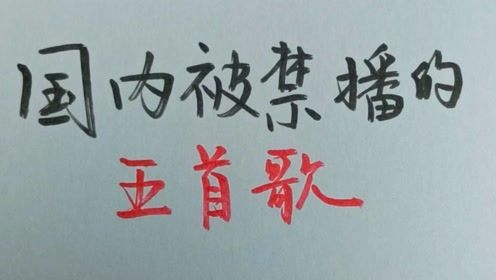 国内被禁播的
五首歌